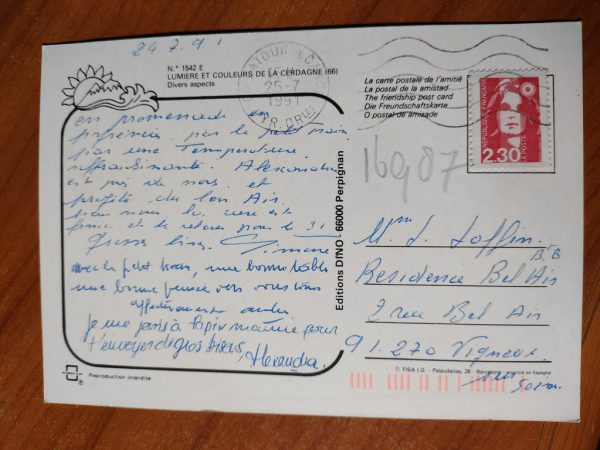 24.7.91
N.° 1542 E
LUMIERE ET COULEURS DE LA CERDAGNE (66)
Divers aspects
25-7
1991
PYR. ORLES
La carte postale de l'amitié
La postal de la amistad
The friendship post card
Die Freundschaftskarte
O postal de amizade
REPUBLIQUE FRANÇAISE
2.30
LA POSTE
16907
en promenade en
par le petit train
par une Temperature
Alexandra
est pas de nous et
profite du bon Air
pour nous la cure est
et le retour pour le 31
Grosses bises. Simone
avec le petit train, une bonne table
une bonne pensée vers vous tous
affectueusement
je me joins à
t'envoyer de gros bisous, Alexandra.
Editions DINO - 66000 Perpignan
Mm J. Loffin
Bt B
Residence Bel Air
2 rue Bel Air
91.270 Vigneux
sur Seine
Reproduction interdite
© FISA I.G. - Palaudarias, 26 - Barcelona - Imprimé en Espagne